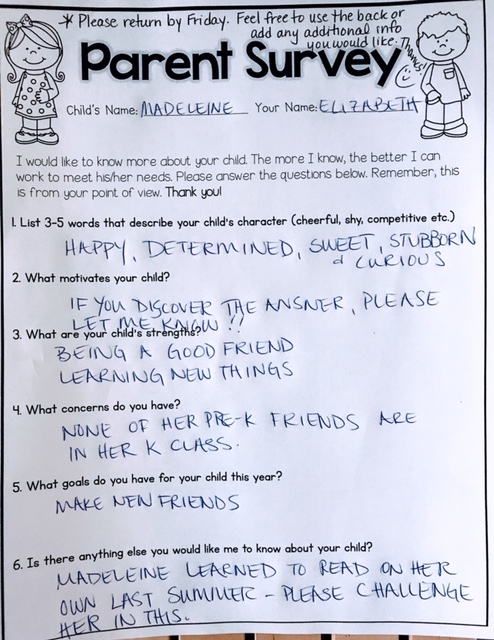 * Please return by Friday. Feel free to use the back or
add any additional info
you would like. Thanks!
Parent Survey
Child's Name: MADELEINE Your Name: ELIZABETH
I would like to know more about your child. The more I know, the better I can
work to meet his/her needs. Please answer the questions below. Remember, this
is from your point of view. Thank you!
1. List 3-5 words that describe your child's character (cheerful, shy, competitive etc.)
HAPPY, DETERMINED, SWEET, STUBBORN
& CURIOUS
2. What motivates your child?
IF YOU DISCOVER THE ANSWER, PLEASE
LET ME KNOW!!
3. What are your child's strengths?
BEING A GOOD FRIEND
LEARNING NEW THINGS
4. What concerns do you have?
NONE OF HER PRE-K FRIENDS ARE
IN HER K CLASS.
5. What goals do you have for your child this year?
MAKE NEW FRIENDS
6. Is there anything else you would like me to know about your child?
MADELEINE LEARNED TO READ ON HER
OWN LAST SUMMER - PLEASE CHALLENGE
HER IN THIS.